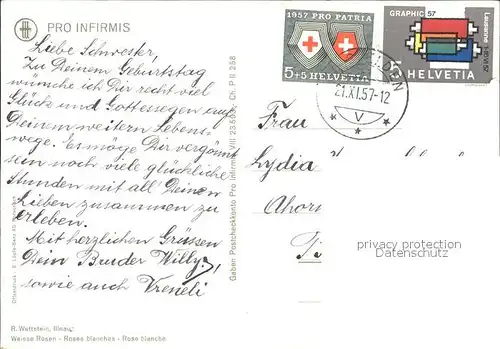 PRO INFIRMIS
Liebe Schwester,
Zu Deinem Geburtstag
wünsche ich Dir recht viel
Glück und Gottessegen auf
Deinem weitern Lebens
wege. Es möge Dir vergönnt
sein noch viele glückliche
Stunden mit all Deinen
Lieben zusammen zu
erleben.
Mit herzlichen Grüssen
Dein Bruder Willy.
sowie auch Vreneli
R. Wettstein, Illnau:
Weisse Rosen - Roses blanches - Rose bianche
Gaben Postcheckkonto Pro Infirmis VIII 23 503
1957 PRO PATRIA
5+5 HELVETIA
GRAPHIC 57
Lausanne
5 HELVETIA
21.XI.57-12
V
Frau
Lydia
Ahorn
privacy protection
Datenschutz